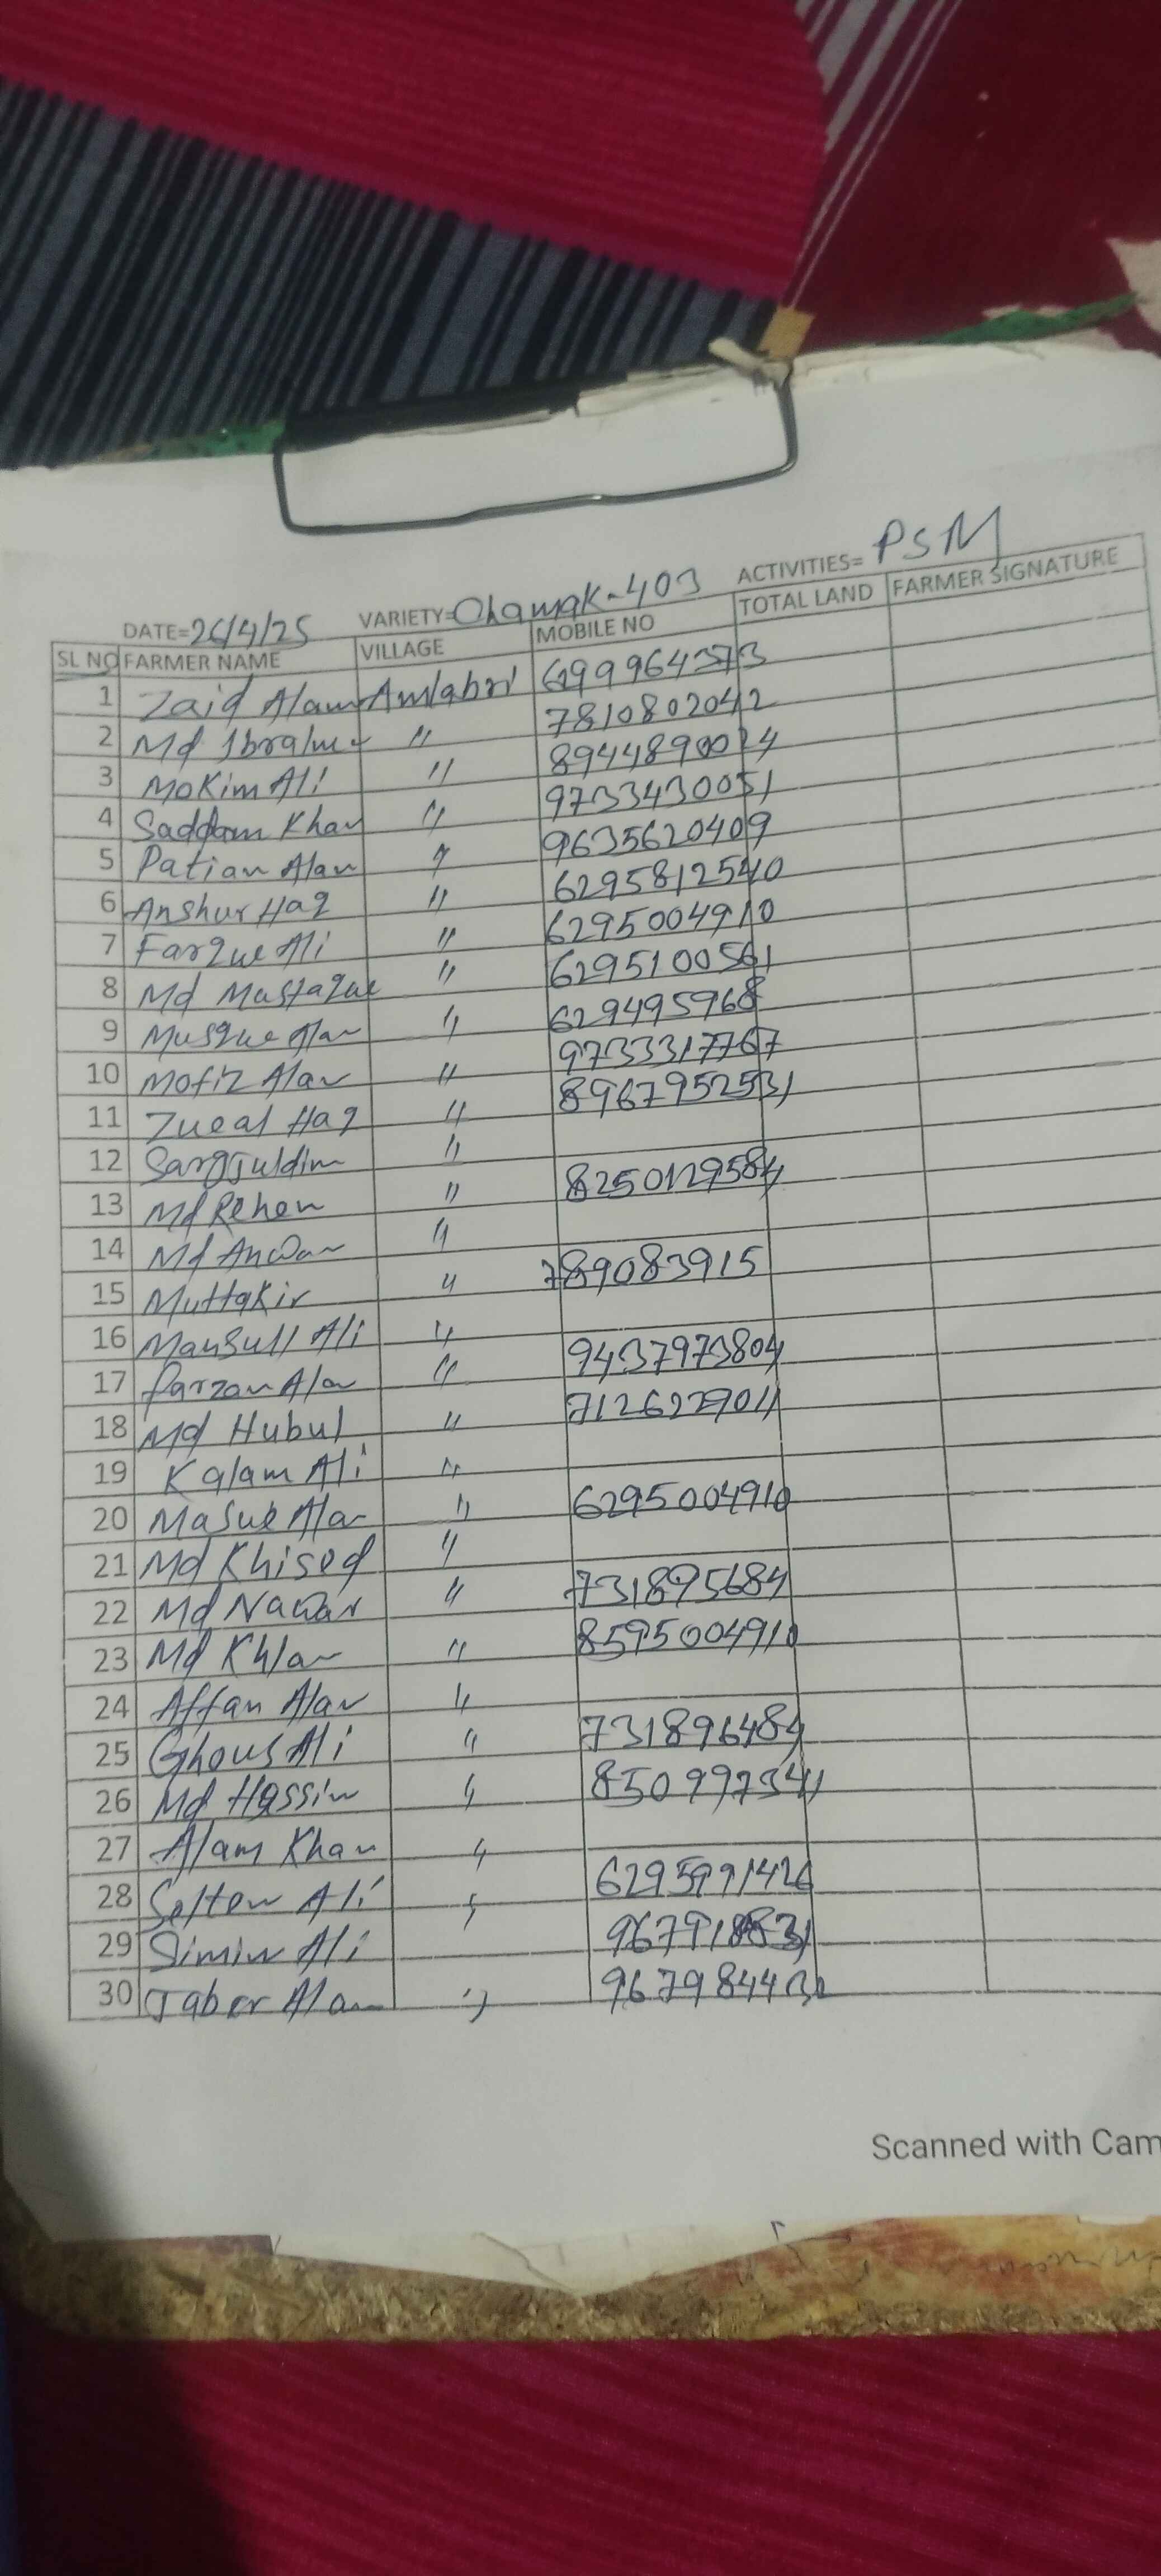 DATE=26/4/25 VARIETY=Chamak-403 ACTIVITIES=PSM
SL NO FARMER NAME VILLAGE MOBILE NO TOTAL LAND FARMER SIGNATURE
1 Zaid Alam Amlabri 6299964373
2 Md Ibrahim " 7810802042
3 Mokim Ali " 8944890024
4 Saddam Khan " 9733430051
5 Patian Alam " 9635620409
6 Anshur Haq " 6295812540
7 Farque Ali " 6295004910
8 Md Mustaque " 6295100561
9 Musque Alam " 629495968
10 Mofiz Alam " 9733317767
11 Zueal Haq " 8967952531
12 "
13 Md Rehen " 8250129584
14 Md Anwar "
15 Muttakir " 789083915
16 Mansull Ali "
17 Parzan Alam " 9437973804
18 Md Hubul " 7126227011
19 Kalam Ali "
20 Masue Alam " 6295004910
21 Md Khised "
22 Md Nawar " 731895684
23 Md Khlam " 8595004910
24 Affan Alam "
25 Ghous Ali " 731896484
26 Md Hassim " 850997341
27 Alam Khan "
28 Selten Ali " 6295991426
29 Simin Ali
30 Jaber Alam "
Scanned with Cam